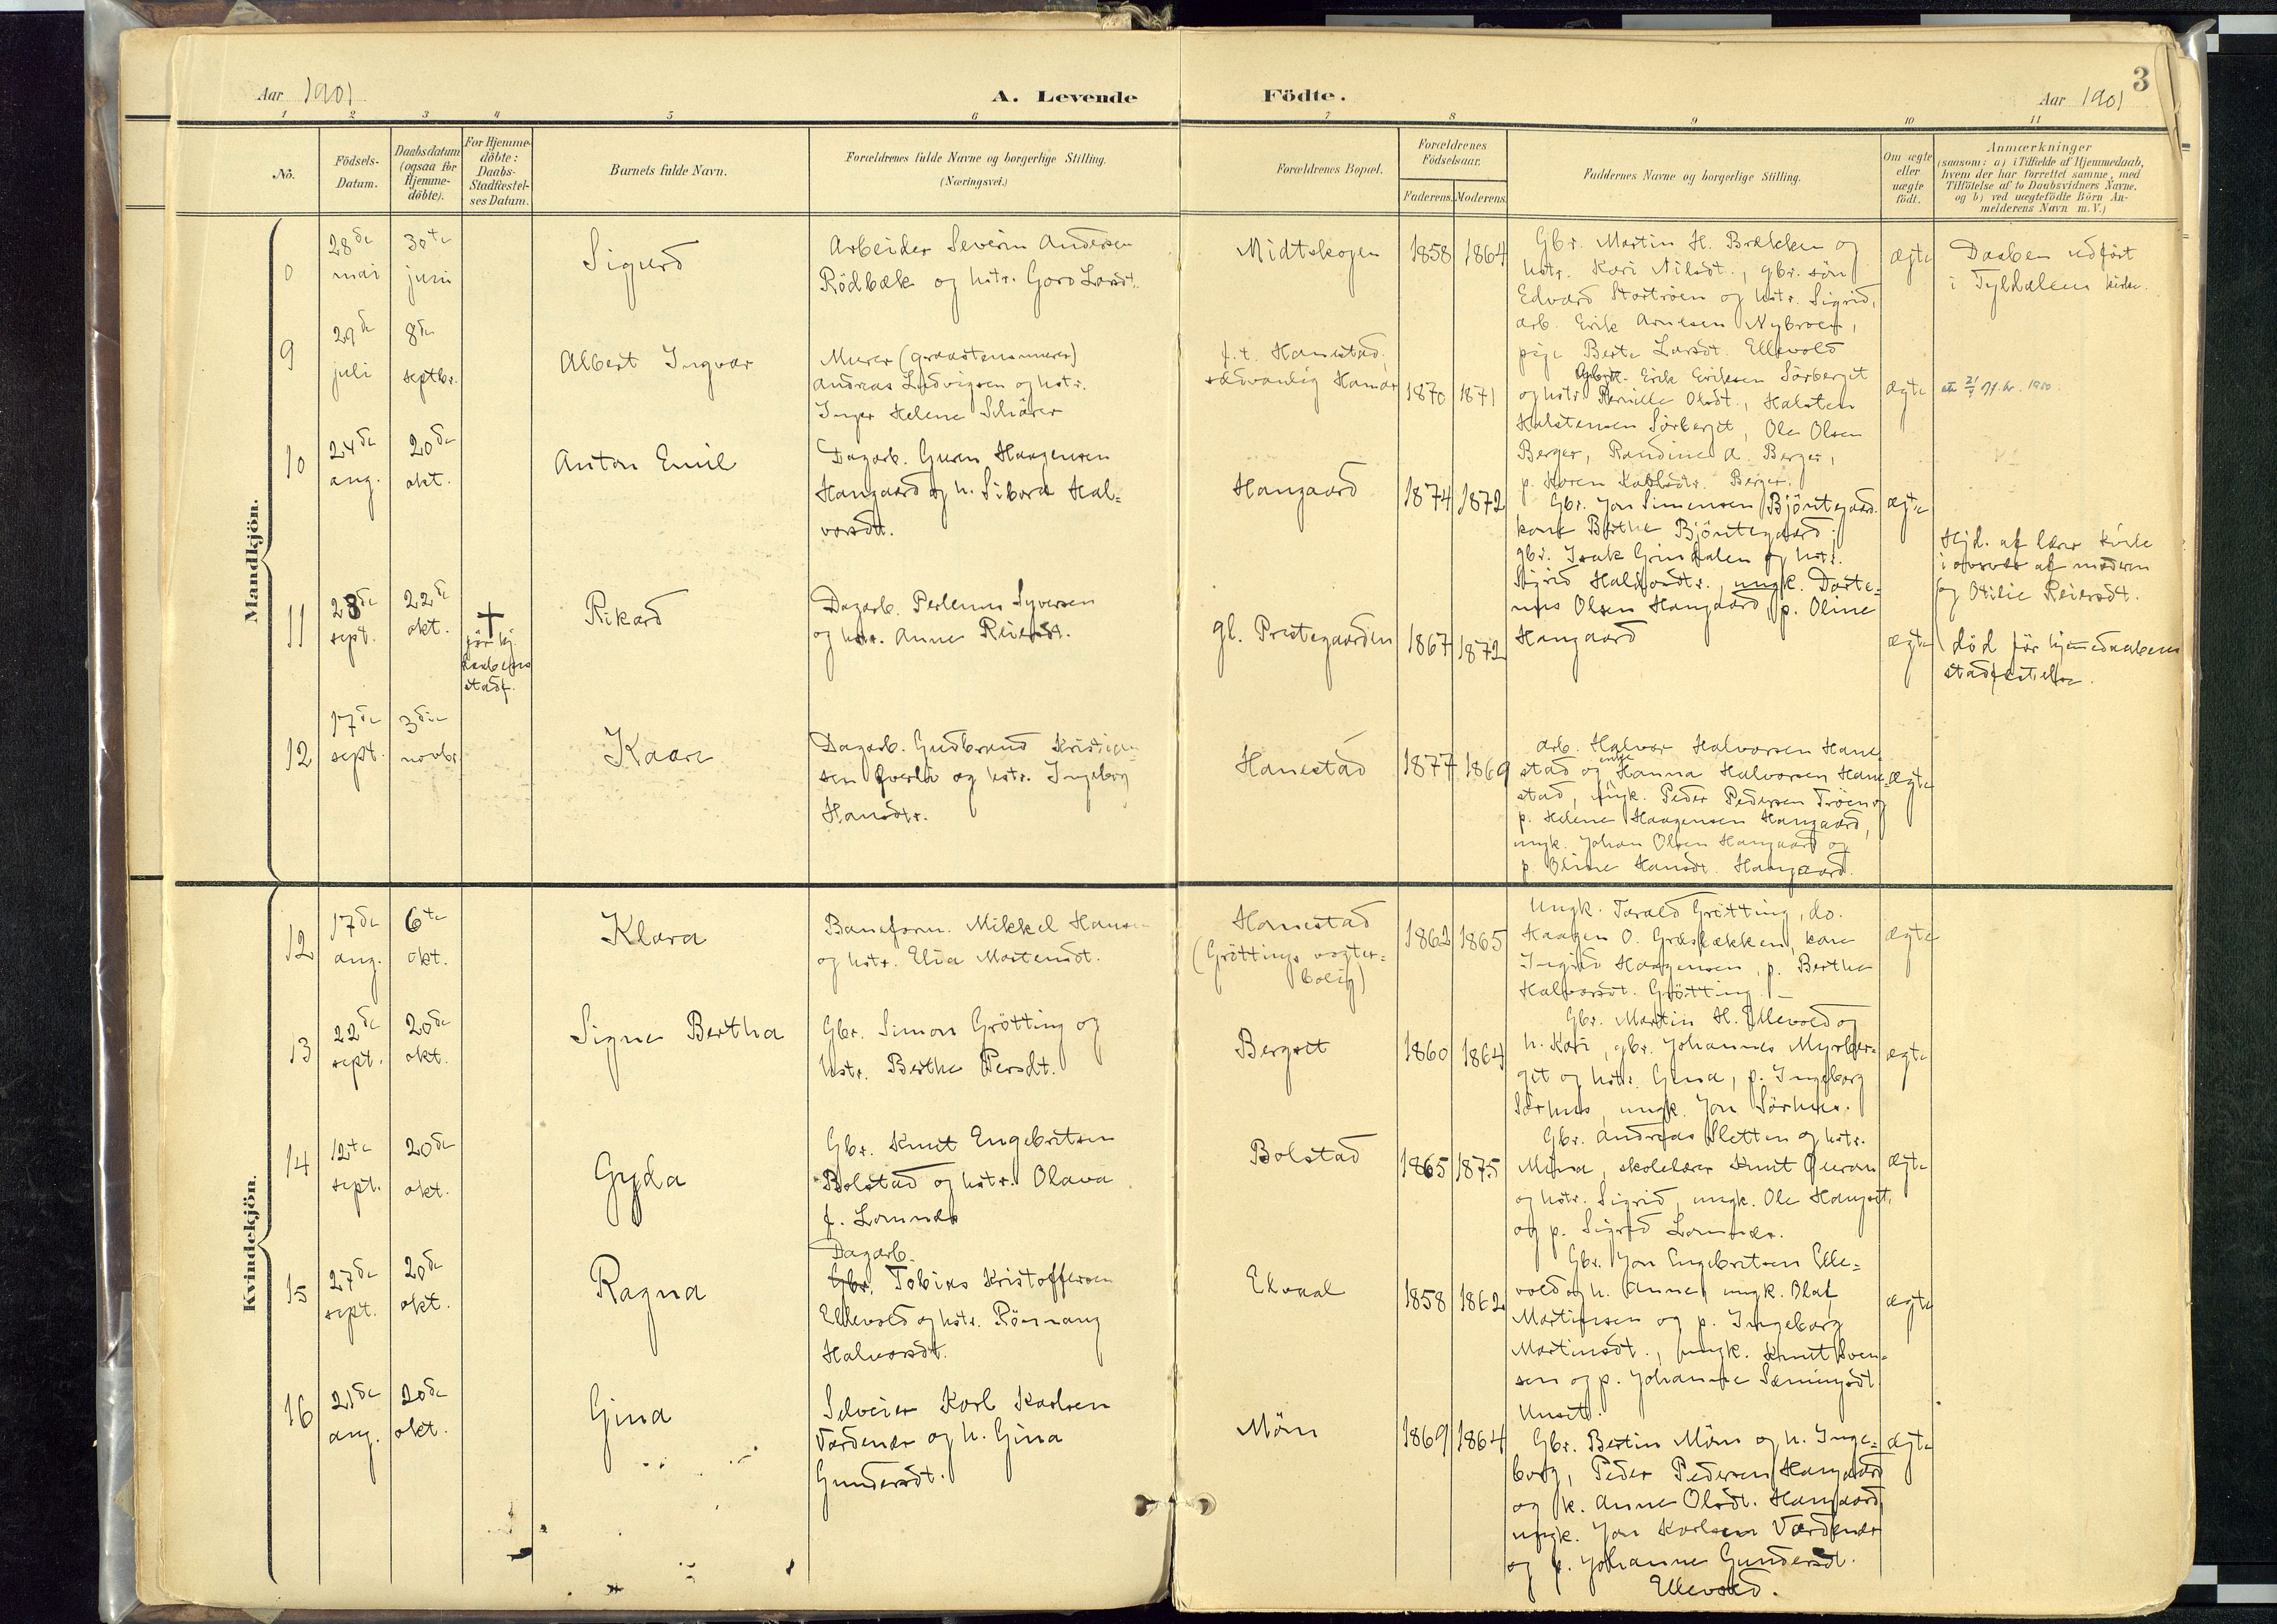 3
Aar 1901
A. Levende
Födte.
Aar 1901
1 2 3 4 5 6 7 8 9 10 11
No.
Födsels-
Datum.
Daabsdatum
(ogsaa for
Hjemme-
döbte).
For Hjemme-
döbte:
Daabs-
Stadfæstel-
ses Datum.
Barnets fulde Navn.
Forældrenes fulde Navne og borgerlige Stilling.
(Næringsvei.)
Forældrenes Bopæl.
Forældrenes
Födselsaar.
Faderens. Moderens.
Faddernes Navne og borgerlige Stilling.
Om ægte
eller
uægte
födt.
Anmærkninger
(saasom: a) i Tilfælde af Hjemmedaab,
hvem der har forrettet samme, med
Tilföielse af to Daabsvidners Navne.
og b) ved uægtefödte Börn An-
melderens Navn m. V.)
Mandkjön.
28de
mai
30te
juni
Sigurd
Arbeider Severin Andersen
Rödbæk og hstr. Goro Larsdt.
Midtskogen
1858 1864
Gbr. Martin H. Brækken og
hstr. Kari Nilsdt., gbr. sön
Edvard Stortröen og hstr. Sigrid,
arb. Erik Arnesen Nybroen,
pige Berte Larsdt. Ellevold
ægte
Daaben udfört
i Tyldalens kirke.
9
29de
juli
8de
septbr.
Albert Ingvar
Murer (graastensmurer)
Andreas Ludvigsen og hstr.
Inger Helene Schärer
f.t. Hanestad,
sædvanlig Hamar
1870 1871
Erik Eriksen Sörberget
og hstr. Pernille Olsdt., Halsten
Halstensen Sörberget, Ole Olsen
Berger, Randine A. Berger,
p. Karen Berger.
ægte
10
24de
aug.
20de
okt.
Anton Emil
Dagarb. Haagensen
Haugaard og h. Sibora Hal-
vorsdt.
Haugaard
1874 1872
Gbr. Jon Simensen Bjöntegaard
kone Berthe Bjöntegaard,
gbr. Isak Grindalen og hstr.
Sigrid Halvorsdtr., ungk. Dorte-
nus Olsen Haugaard, p. Oline
Haugaard
ægte
11
28de
sept.
22de
okt.
†
för hj.
daabens
stadf.
Rikard
Dagarb. Perlenus Syversen
og hstr. Anne Reiersdt.
gl. Prestegaarden
1867 1872
ægte
Hjd. af lærer
i overvær af moderen
og Otilie Reiersdt.
död för hjemmedaabens
stadfæstelse.
12
17de
sept.
3die
novbr.
Kaare
Dagarb. Gudbrand Kristian-
sen Överli og hstr. Ingeborg
Hansdtr.
Hanestad
1877 1869
Arb. Halvor Halvorsen Hane-
stad og enke Hanna Halvorsen Hane-
stad, ungk. Peder Pedersen Tröen og
p. Helene Haagensen Haugaard,
ungk. Johan Olsen Haugaard og
p. Oline Hansdt. Haugaard.
ægte
Kvindekjön.
12
17de
aug.
6te
okt.
Klara
Baneform. Mikkel Hansen
og hstr. Elia Mortensdt.
Hanestad
(Gröttings vogter-
bolig)
1862 1865
Ungk. Tarald Grötting, do.
Haagen O. Græsbækken, kone
Ingrid Haagensen, p. Berthe
Halvorsdt. Grötting.
ægte
13
22de
sept.
20de
okt.
Signe Bertha
Gbr. Simon Grötting og
hstr. Berthe Persdt.
Bergset
1860 1864
Gbr. Martin H. Ellevold og
h. Kari, gbr. Johannes Myrber-
get og hstr. Gina, p. Ingeborg
Sörhus, ungk. Jon Sörhus.
ægte
14
12te
sept.
20de
okt.
Gyda
Gbr. Knut Engebritsen
Bolstad og hstr. Olava
f. Lomnæs
Bolstad
1865 1875
Gbr. Andreas Sletten og hstr.
Mina, skolelærer Knut
og hstr. Sigrid, ungk. Ole Haugset,
og p. Sigrid Lomnæs.
ægte
15
27de
sept.
20de
okt.
Ragna
Dagarb.
Gbr. Tobias Kristoffersen
Ellevold og hstr. Rönnaug
Halvorsdt.
Elvaal
1858 1862
Gbr. Jon Engebritsen Elle-
vold og h. Anne, ungk. Olaf
Martinsen og p. Ingeborg
Martinsdt., ungk. Knut Sven-
sen og p. Johanne Sæmingsdt.
Unset.
ægte
16
21de
aug.
20de
okt.
Gina
Selveier Karl Karlsen
Vardenær og h. Gina
Gundersdt.
Möen
1869 1864
Gbr. Bertin Möen og h. Inge-
borg, Peder Pedersen Haugaard
og k. Anne Olsdt. Haugaard,
ungk. Jon Karlsen Vardenær
og p. Johanne Gundersdt.
Ellevold.
ægte